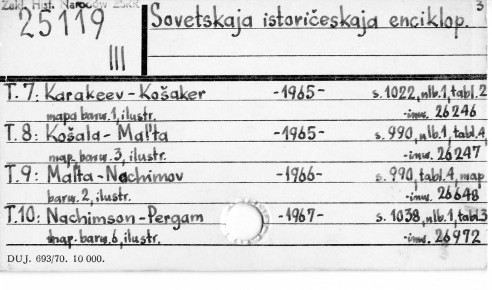 Zakł. Hist. Narodów ZSRR
25119
III
3
Sovetskaja istoričeskaja enciklop.
T. 7: Karakeev - Košaker -1965- s. 1022, nlb. 1, tabl. 2
mapa barw. 1, ilustr. -inw. 26246
T. 8: Košala - Mal'ta -1965- s. 990, nlb. 1, tabl. 4,
map. barw. 3, ilustr. -inw. 26247
T. 9: Mal'ta - Nachimov -1966- s. 990, tabl. 4, map
barw. 2, ilustr. -inw. 26648
T. 10: Nachimson - Pergam -1967- s. 1038, nlb. 1, tabl. 3
map. barw. 6, ilustr. -inw. 26972
DUJ. 693/70. 10 000.